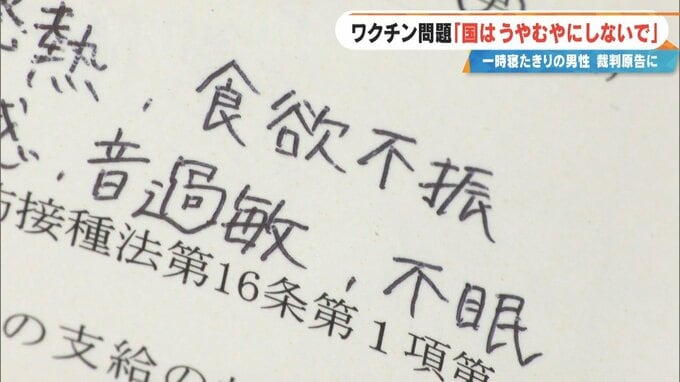 ワクチン問題「国は うやむやにしないで」
一時寝たきりの男性 裁判原告に
熱，食欲不振
感，音過敏，不眠
防接種法第16条第1項第
の支給の